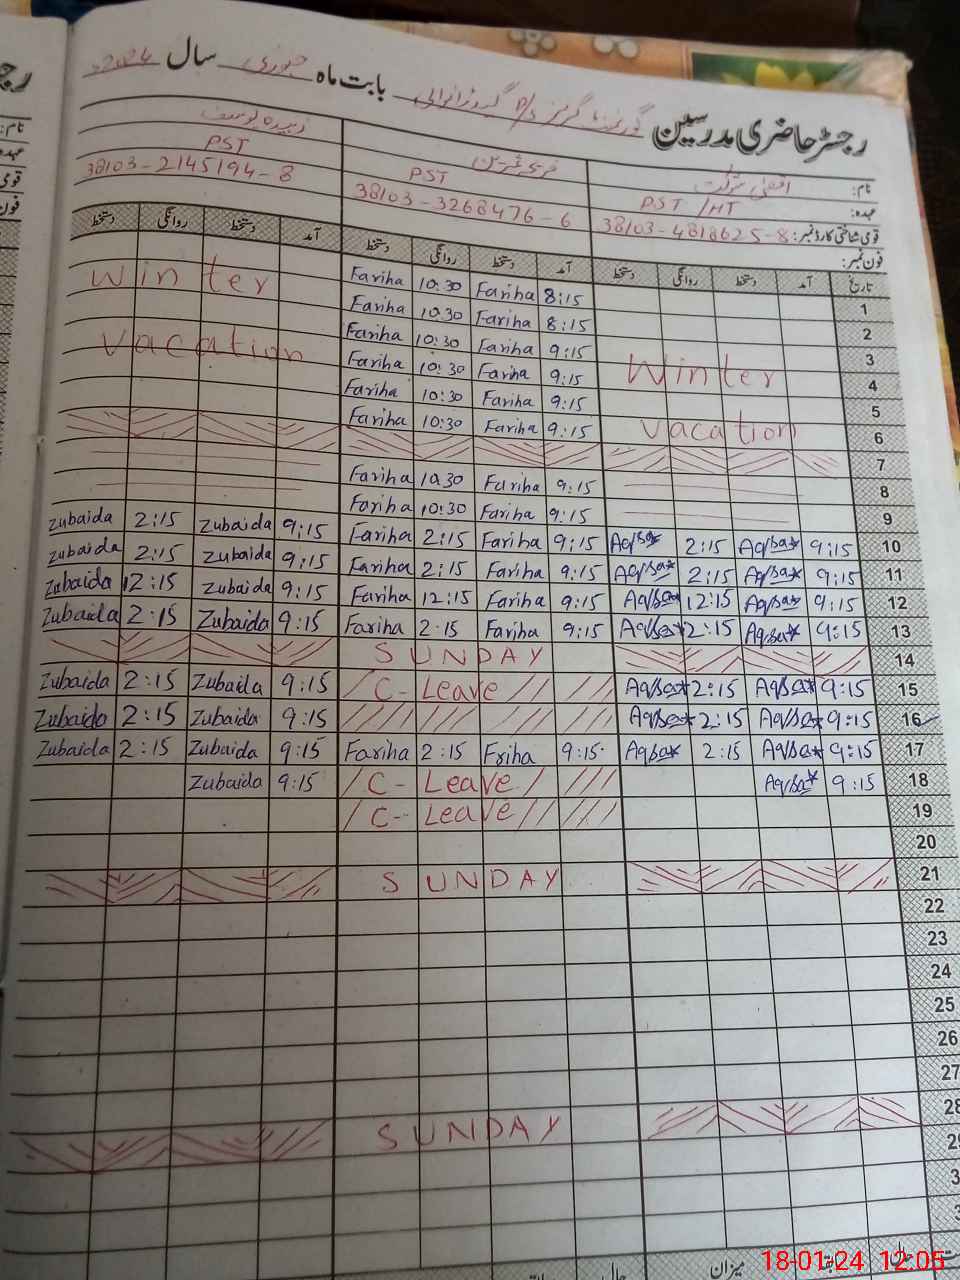 رجسٹر حاضری مدرسین گورنمنٹ گرلز P/S بابت ماہ جنوری سال 2024
نام: اقصیٰ شوکت زبیدہ یوسف
عہدہ: PST / HT PST PST
قومی شناختی کارڈ نمبر: 38103-4818625-8 38103-3268476-6 38103-2145194-8
فون نمبر:
تاریخ آمد دستخط روانگی دستخط آمد دستخط روانگی دستخط آمد دستخط روانگی دستخط
Fariha 10:30 Fariha 8:15 1
Winter Fariha 10:30 Fariha 8:15 2
Fariha 10:30 Fariha 9:15 3
Vacation Fariha 10:30 Fariha 9:15 Winter 4
Fariha 10:30 Fariha 9:15 5
Fariha 10:30 Fariha 9:15 Vacation 6
7
Fariha 10:30 Fariha 9:15 8
Fariha 10:30 Fariha 9:15 9
Zubaida 2:15 Zubaida 9:15 Fariha 2:15 Fariha 9:15 Aqsa 2:15 Aqsa 9:15 10
Zubaida 2:15 Zubaida 9:15 Fariha 2:15 Fariha 9:15 Aqsa 2:15 Aqsa 9:15 11
Zubaida 12:15 Zubaida 9:15 Fariha 12:15 Fariha 9:15 Aqsa 12:15 Aqsa 9:15 12
Zubaida 2:15 Zubaida 9:15 Fariha 2:15 Fariha 9:15 Aqsa 2:15 Aqsa 9:15 13
SUNDAY 14
Zubaida 2:15 Zubaida 9:15 C-Leave Aqsa 2:15 Aqsa 9:15 15
Zubaida 2:15 Zubaida 9:15 Aqsa 2:15 Aqsa 9:15 16
Zubaida 2:15 Zubaida 9:15 Fariha 2:15 Friha 9:15 Aqsa 2:15 Aqsa 9:15 17
Zubaida 9:15 C-Leave Aqsa 9:15 18
C-Leave 19
20
SUNDAY 21
22
23
24
25
26
27
SUNDAY 28
29
میزان
18-01-24 12:05